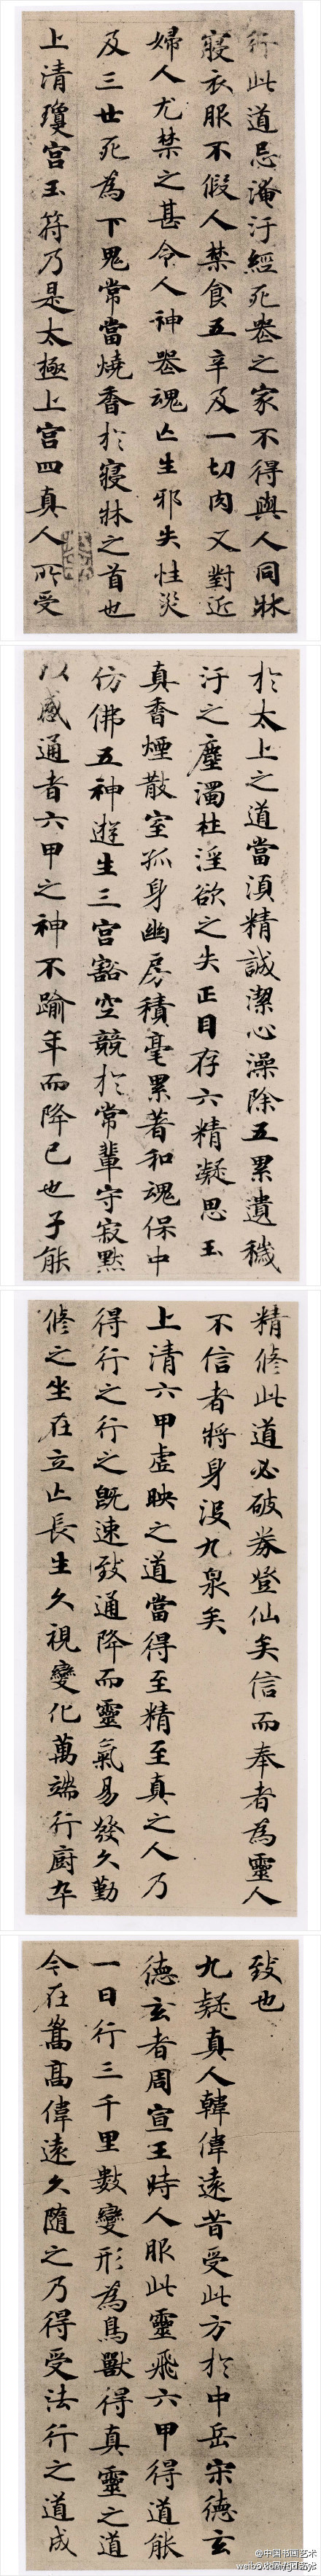 行此道忌淹汙經死喪之家不得與人同牀
寢衣服不假人禁食五辛及一切肉又對近
婦人尤禁之甚令人神喪魂亡生邪失性災
及三世死為下鬼常當燒香於寢牀之首也
上清瓊宮玉符乃是太極上宮四真人所受
於太上之道當須精誠潔心澡除五累遺穢
汙之塵濁杜淫欲之失正目存六精凝思玉
真香煙散室孤身幽房積毫累著和魂保中
仿佛五神遊生三宮豁空競於常輩守寂默
以感通者六甲之神不踰年而降已也子能
精修此道必破券登仙矣信而奉者為靈人
不信者將身沒九泉矣
上清六甲虛映之道當得至精至真之人乃
得行之行之既速致通降而靈氣易發久勤
修之坐在立亡長生久視變化萬端行廚卒
致也
九疑真人韓偉遠昔受此方於中岳宋德玄
德玄者周宣王時人服此靈飛六甲得道能
一日行三千里數變形為鳥獸得真靈之道
今在嵩高偉遠久隨之乃得受法行之道成
@中国书画艺术